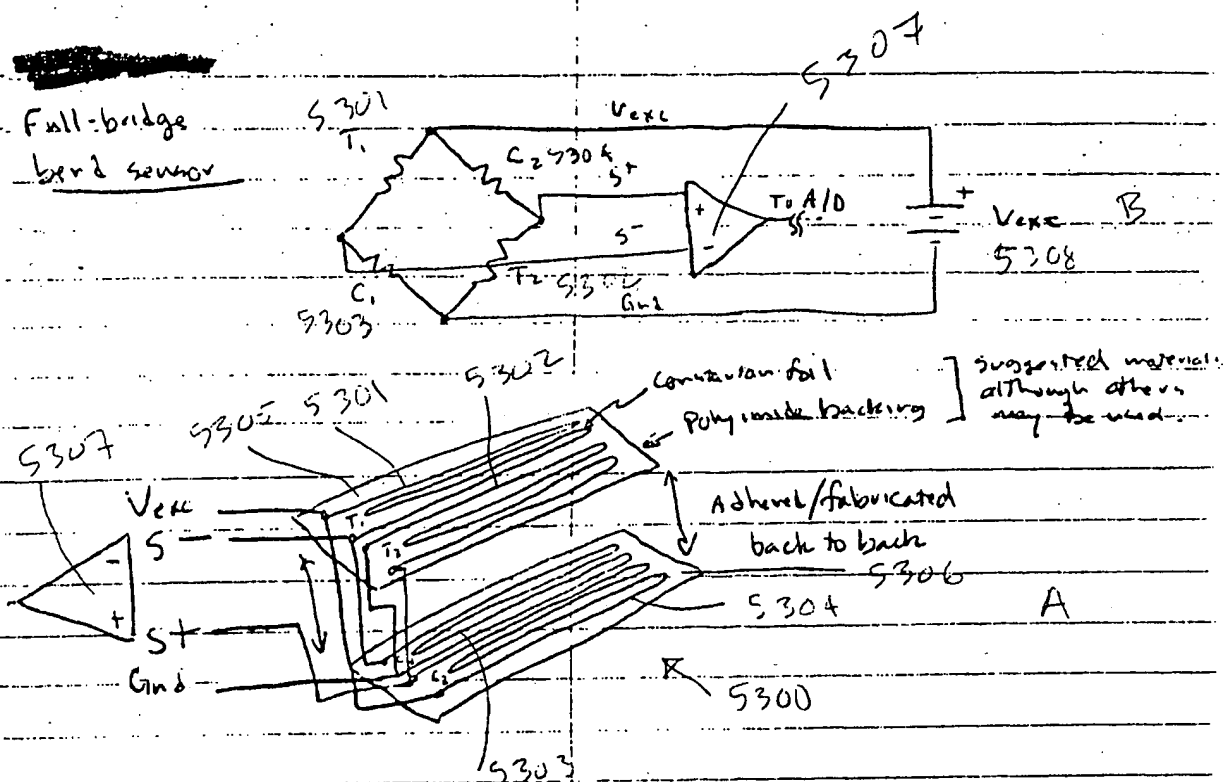 5307
Full-bridge
bend sensor
5301
T1
Vexc
C2 5304
S+
To A/D
+
-
+
-
Vexc
5308
B
S-
T2 5302
C1
5303
Gnd
5305 5301 5302
Constantan foil
Polyimide backing
suggested material.
although others
may be used.
5307
Vexc
S-
S+
Gnd
-
+
T1
T2
C1
C2
Adhered/fabricated
back to back
5306
5304
A
5300
5303